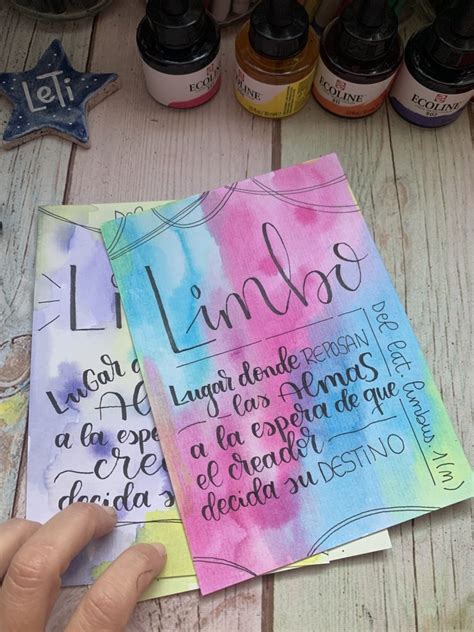 LeTi
ECOLINE
ECOLINE
ECOLINE
Limbo
Lugar donde REPOSAN
las Almas
a la espera de que
el creador
decida su DESTINO
Del lat. limbus. 1(m)
Del
Li
Lugar d
Al
a la espe
crea
decida s